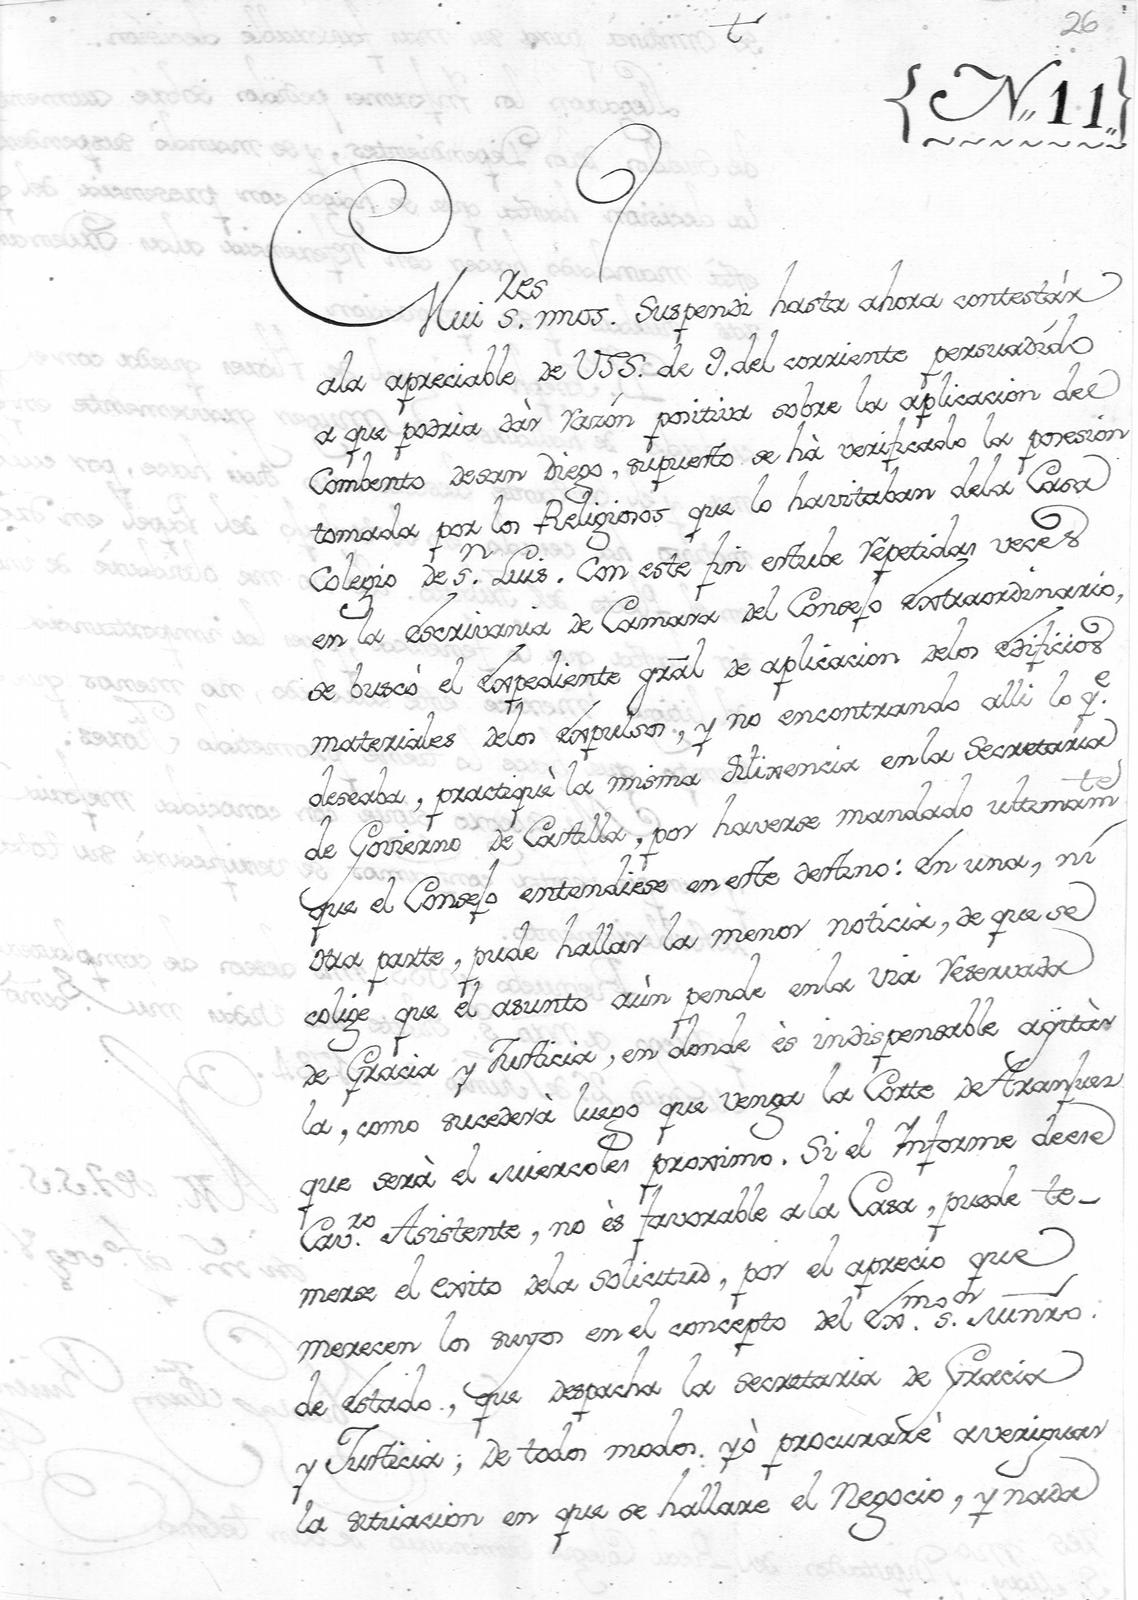 t
26
{N,, 11,,}
Mui S.res mios. Suspendi hasta ahora contestàr
ala apreciable de USS. de 9. del corriente persuadído
a que podria dàr razón positiva sobre la aplicacion del
Combento desan Diego, supuesto se hà verificado la posesion
tomada por los Religiosos que lo havitaban dela Casa
Colegio de S.n Luis. Con este fin estube repetidas veces
en la Escrivania de Camara del Consejo Extraordinario,
se buscò el Expediente gral de aplicacion delos edificios
materiales delos Expulsos, y no encontrando alli lo q.e
deseaba, practiquè la misma dilixencia en la Secretaria
de Govierno de Castilla, por haverse mandado ultimam.te
que el Consejo entendiese en este destino: En una, ni
otra parte, pude hallar la menor noticia, de que se
colige que el asunto aùn pende enla via reservada
de Gracia y Justicia, en donde ès indispensable agitàr
la, como sucederà luego que venga la Corte de Aranjuez
que serà el Miercoles proximo. Si el Informe deese
Cav.ro Asistente, no ès favorable ala Casa, puede te-
merse el exito dela solicitud, por el aprecio que
merecen los suyos en el concepto del Ex.mo S.or Minro.
de Estado, que despacha la secretaria de Gracia
y Justicia; de todos modos yò procurarè averiguar
la situacion en que se hallare el Negocio, y nada